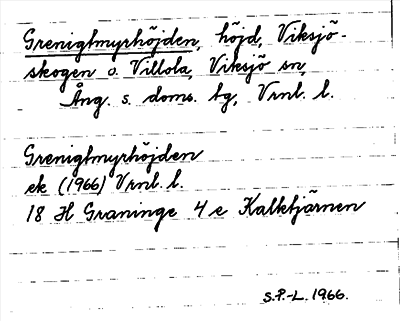 Grenigtmyrhöjden, höjd, Viksjö-
skogen o. Villola, Viksjö sn,
Ång. s. doms. bg, Vrnl. l.
Grenigtmyrhöjden
ek (1966) Vrnl. l.
18 H Graninge 4 e Kalktjärnen
S.P.-L. 1966.